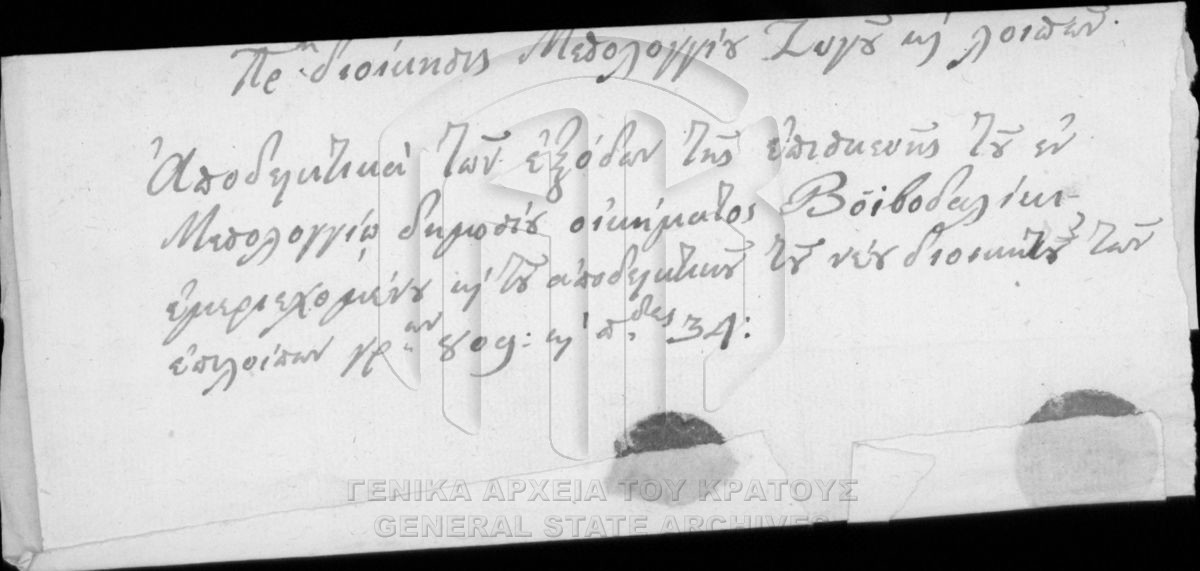 Πρ. διοίκησις Μεσολογγίου Ζυγοῦ κὶ λοιπῶν.
Ἀποδεικτικὰ τῶν ἐξόδων τῆς ἐπισκευῆς τοῦ ἐν
Μεσολογγίῳ δημοσίου οἰκήματος Βοϊβοδαλίκι
ἐμπεριεχομένου κὶ τοῦ ἀποδεικτικοῦ τοῦ νέου διοικητοῦ τῶν
ἐπιλοίπων γρ. κὶ π. 34:
ΓΕΝΙΚΑ ΑΡΧΕΙΑ ΤΟΥ ΚΡΑΤΟΥΣ
GENERAL STATE ARCHIVES